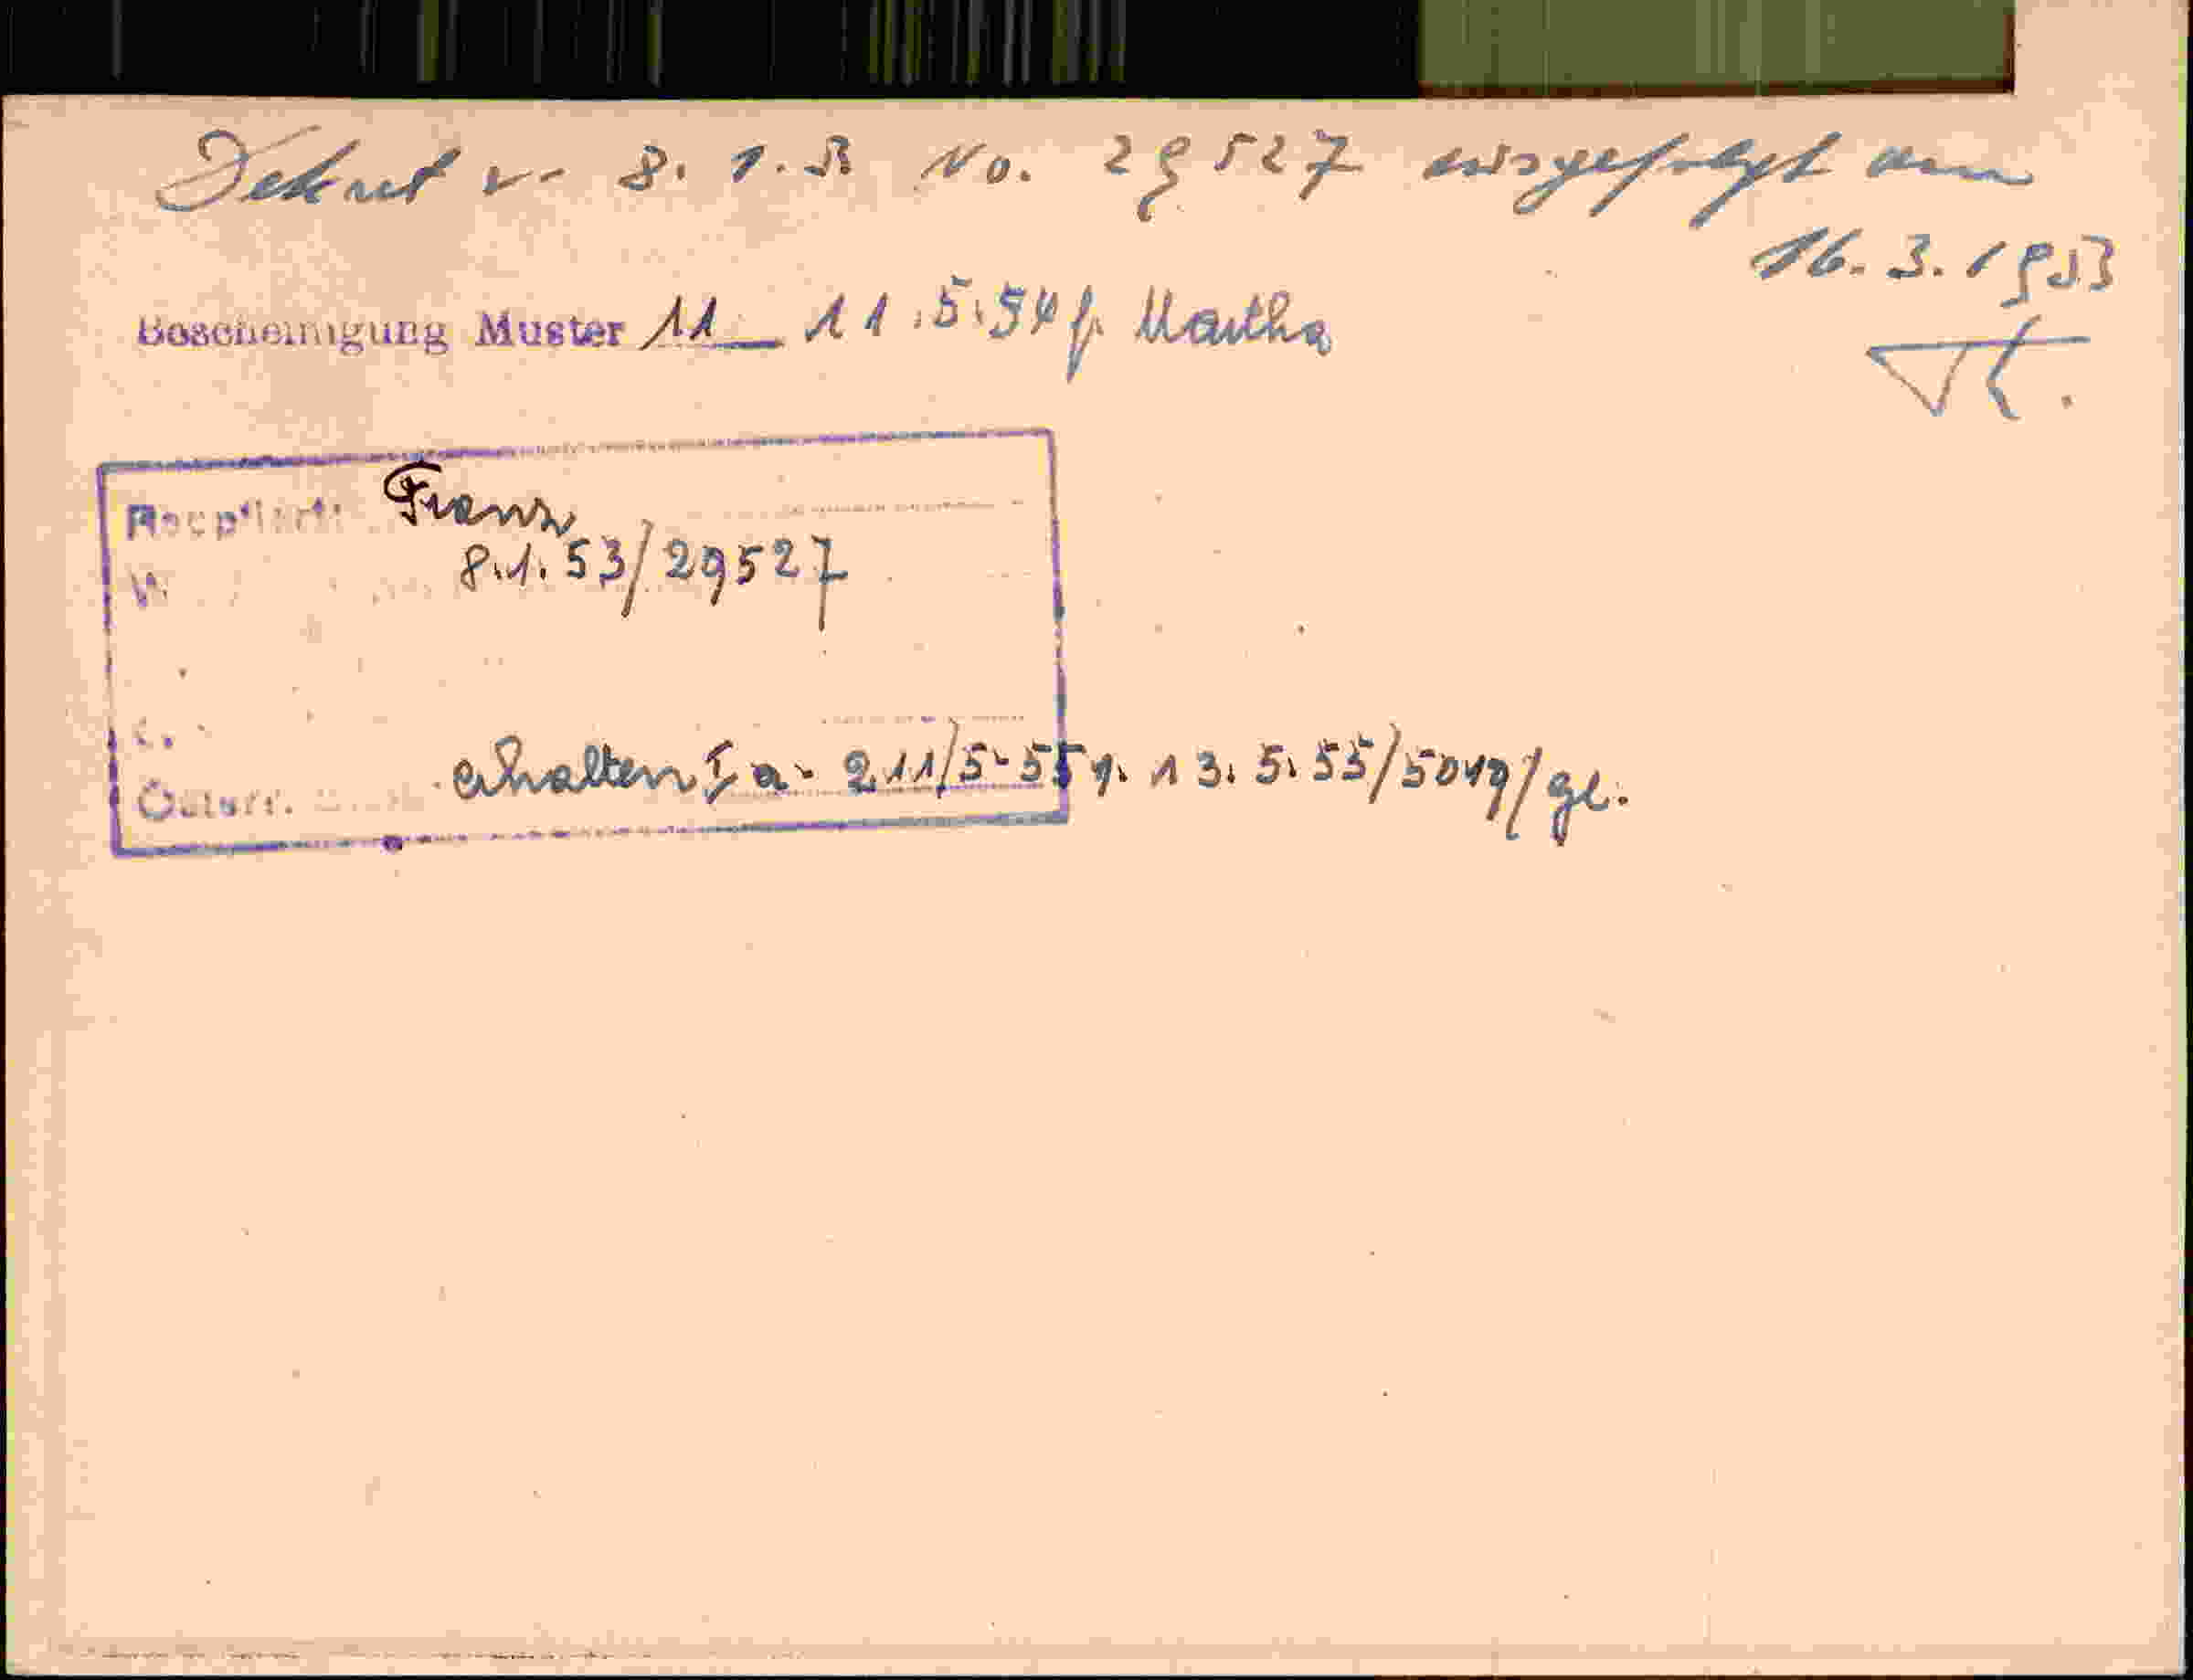 Dekret v. 8. 1. 53 No. 29527 ausgefolgt am
16. 3. 1953
Bescheinigung Muster 11 11.5.54 f. Martha
Franz
8.1.53/29527
erhalten I a - 211/5-55 v. 13.5.55/5019/gl.